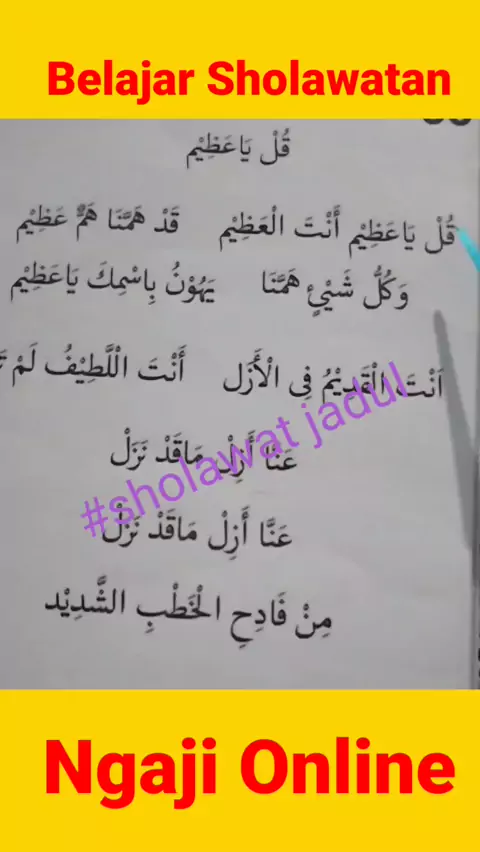 Belajar Sholawatan
قُلْ يَاعَظِيْم
قُلْ يَاعَظِيْم أَنْتَ الْعَظِيْم قَدْ هَمَّنَا هَمٌّ عَظِيْم
وَكُلُّ شَيْئٍ هَمَّنَا يَهُوْنُ بِاسْمِكَ يَاعَظِيْم
اَنْتَ الْقَدِيْمُ فِى الْأَزَل أَنْتَ الْلَّطِيْفُ لَمْ
#sholawat jadul
عَنَّا أَزِلْ مَاقَدْ نَزَلْ
عَنَّا أَزِلْ مَاقَدْ نَزَلْ
مِنْ فَادِحِ الْخَطْبِ الشَّدِيْد
Ngaji Online